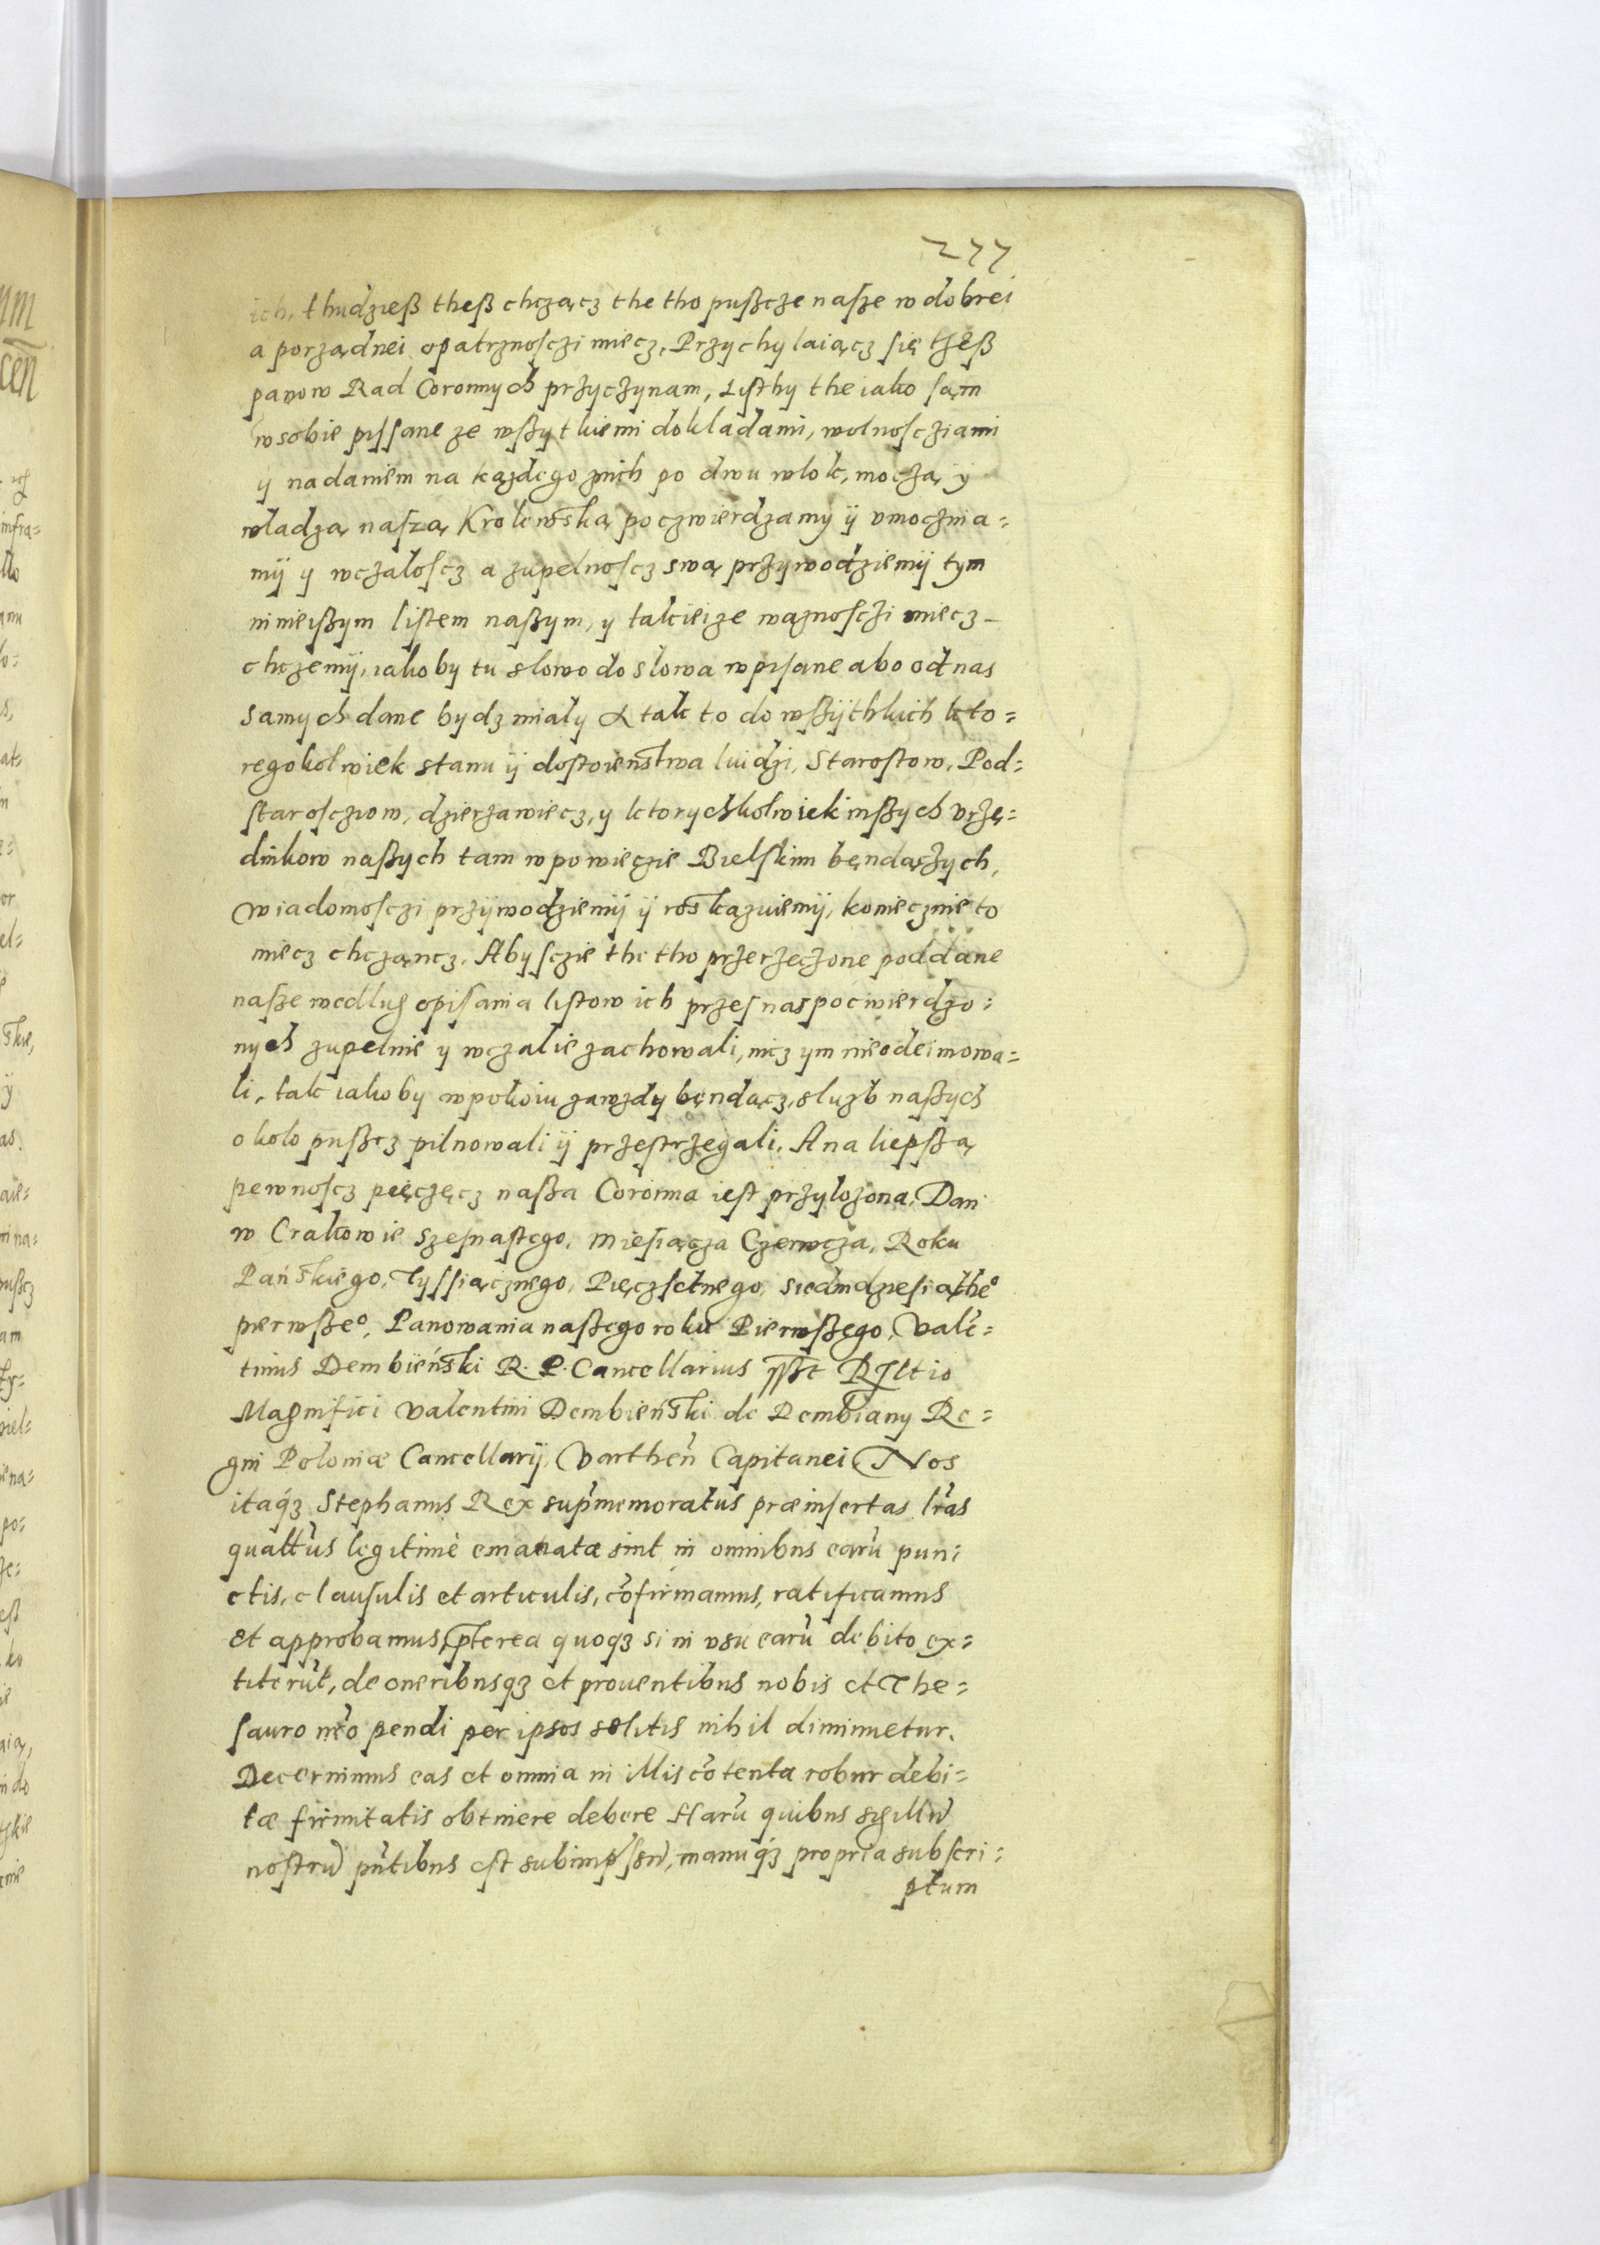 277
ich, thudzieß theß chcząncz the tho pußcze nasze w dobrei
a porządnei opatrznosczi miecz, Przychylaiącz się theß
panow Rad Coronnych przyczynam, Listhy the iako sąm
w sobie pissane ze wßytkiemi dokladami, wolnosczyami
ÿ nadaniem na każdego znich po dwu wlok, moczą y
wladzą naszą Krolewską poczwierdzamy ÿ vmocznia=
mÿ y wczaloscz a zupelnoscz swą przywodziemÿ tym
ninieißym listem naßym, y takieize ważnosczi miecz
chczemÿ, iakoby tu slowo do slowa wpisane abo od nas
samych dane bydz mialy & tak to do wßÿthkich kto=
regokolwiek stanu ÿ dostoieństwa luidzi, Starostow, Pod=
starosczow, dzierzawiecz, y ktorychkolwiek inßych vrzę=
dnikow naßych tam w powieczie Bielskim będączych,
Wiadomosczi przÿwodziemÿ ÿ roskazuiemÿ, koniecznie to
miecz chcząncz. Abysczie the tho przerzeczone poddane
nasze wedlug opisania listow ich przes nas pocwierdzo=
nych zupelnie y wczalie zachowali, nicz ym nieodeimowa=
li, tak iakoby w pokoiu zawżdy będącz, służb naßych
okolo pußcz pilnowali ÿ przestrzegali. A na liepßą
pewnoscz pieczęcz naßa Coronna iest przylozona. Dan
w Crakowie szesnastego, miesiącza Czerwcza, Roku
Pańskiego, Tyssiącznego, Pięczsetnego, siedmdzesiąthe°
pierwße°, Panowania naßego roku Pierwßego, Valē=
tinus Dembieński R. P. Cancellarius sßt Rltio
Magnifici Valentini Dembieński de Dembiany Re=
gni Poloniæ Cancellarÿ, Varthēn Capitanei Nos
itaqȝ Stephanus Rex suprmemoratus præinsertas lras
quattus legitimè emanatæ sint in omnibus earū pun=
ctis, clausulis et articulis, cōfirmamus, ratificamus
et approbamus, pterea quoqȝ si in vsu earū debito ex=
titerūt, de oneribusqȝ et prouentibus nobis et The=
sauro nro pendi per ipsos solitis nihil diminuetur.
Decernimus eas et omnia in illis cōtenta robur debi=
tæ firmitatis obtinere debere Harū quibus sigillū
nostrū pntibus est subimpssū, manuqȝ propria subscri=
ptum